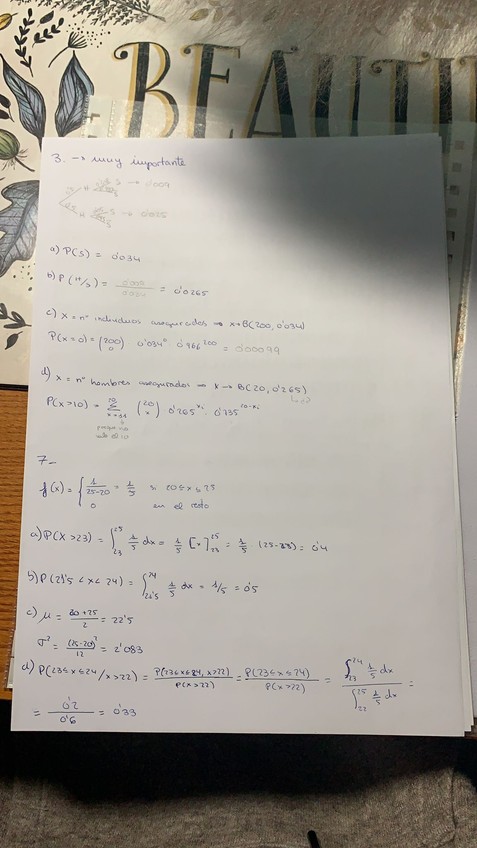 BEAUTI
3. → muy importante
H S → 0'009
M S → 0'025
a) P(S) = 0'034
b) P(H/S) = 0'009 / 0'034 = 0'265
c) X = nº individuos asegurados ⇒ X → B(200, 0'034)
P(X=0) = (200 0) 0'034⁰ 0'966²⁰⁰ = 0'00099
d) X = nº hombres asegurados ⇒ X → B(20, 0'265)
P(X>10) = Σ (20 x) 0'265^xi · 0'735
7_
f(x) = { 1/25-20 = 1/5 si 20≤x≤25
0 en el resto
a) P(X>23) = ∫₂₃²⁵ 1/5 dx = 1/5 [x]₂₃²⁵ = 1/5 (25-23) = 0'4
b) P(21'5 < x < 24) = ∫₂₁'₅²⁴ 1/5 dx = 1/5 = 0'5
c) μ = 20+25 / 2 = 22'5
σ² = (25-20)² / 12 = 2'083
d) P(23≤x≤24/x>22) = P(23≤x≤24, x>22) / P(x>22) = P(23≤x≤24) / P(x>22) = ∫₂₃²⁴ 1/5 dx / ∫₂₂²⁵ 1/5 dx =
= 0'2 / 0'6 = 0'33